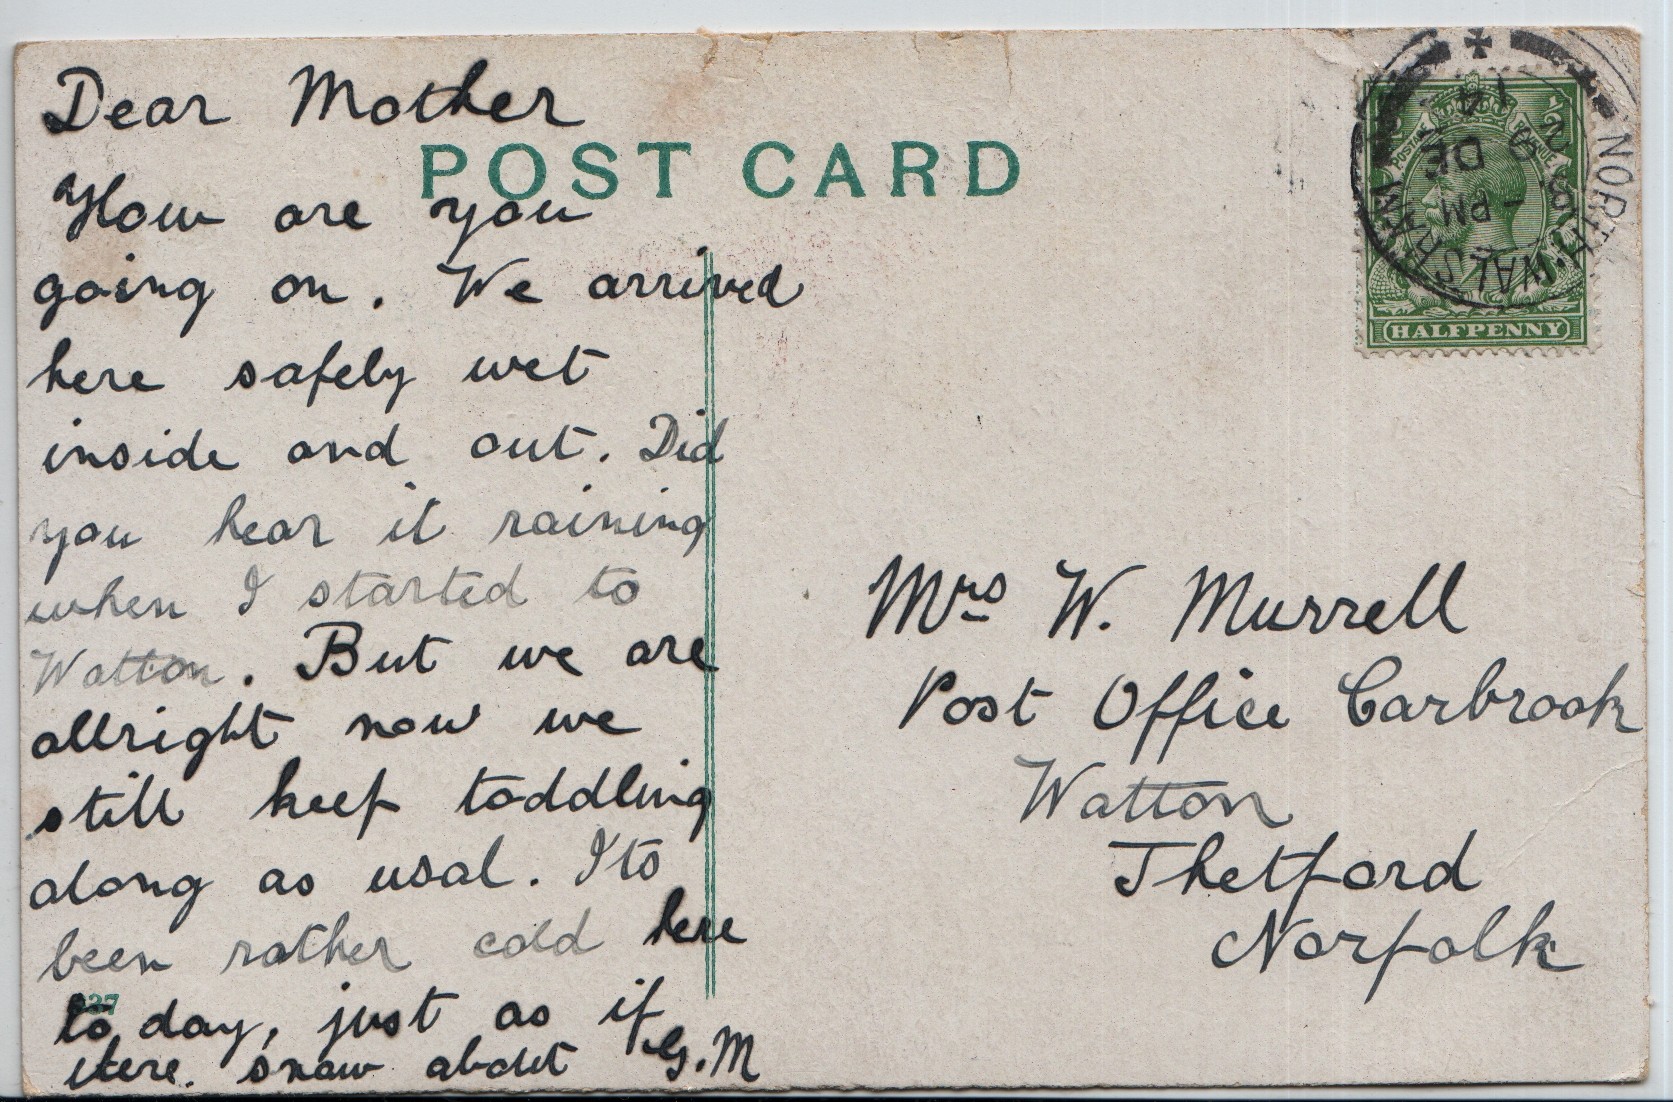 Dear Mother
POST CARD
How are you
going on. We arrived
here safely wet
inside and out. Did
you hear it raining
when I started to
Watton. But we are
allright now we
still keep toddling
along as usal. I'ts
been rather cold here
to day, just as if
there. snow about G.M
Mrs W. Murrell
Post Office Carbrook
Watton
Thetford
Norfolk
NORTH WALSHAM
PM
DE
HALFPENNY